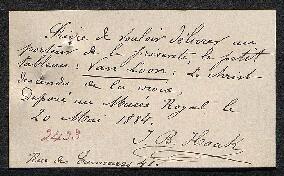 Prière de vouloir délivrer au
porteur de la présente, le petit
tableau: Van Loon: Le Christ
descendu de la croix.
Déposé au Musée Royal le
20 Mai 1884.
J. B. Hoak
2499
Rue de 45.